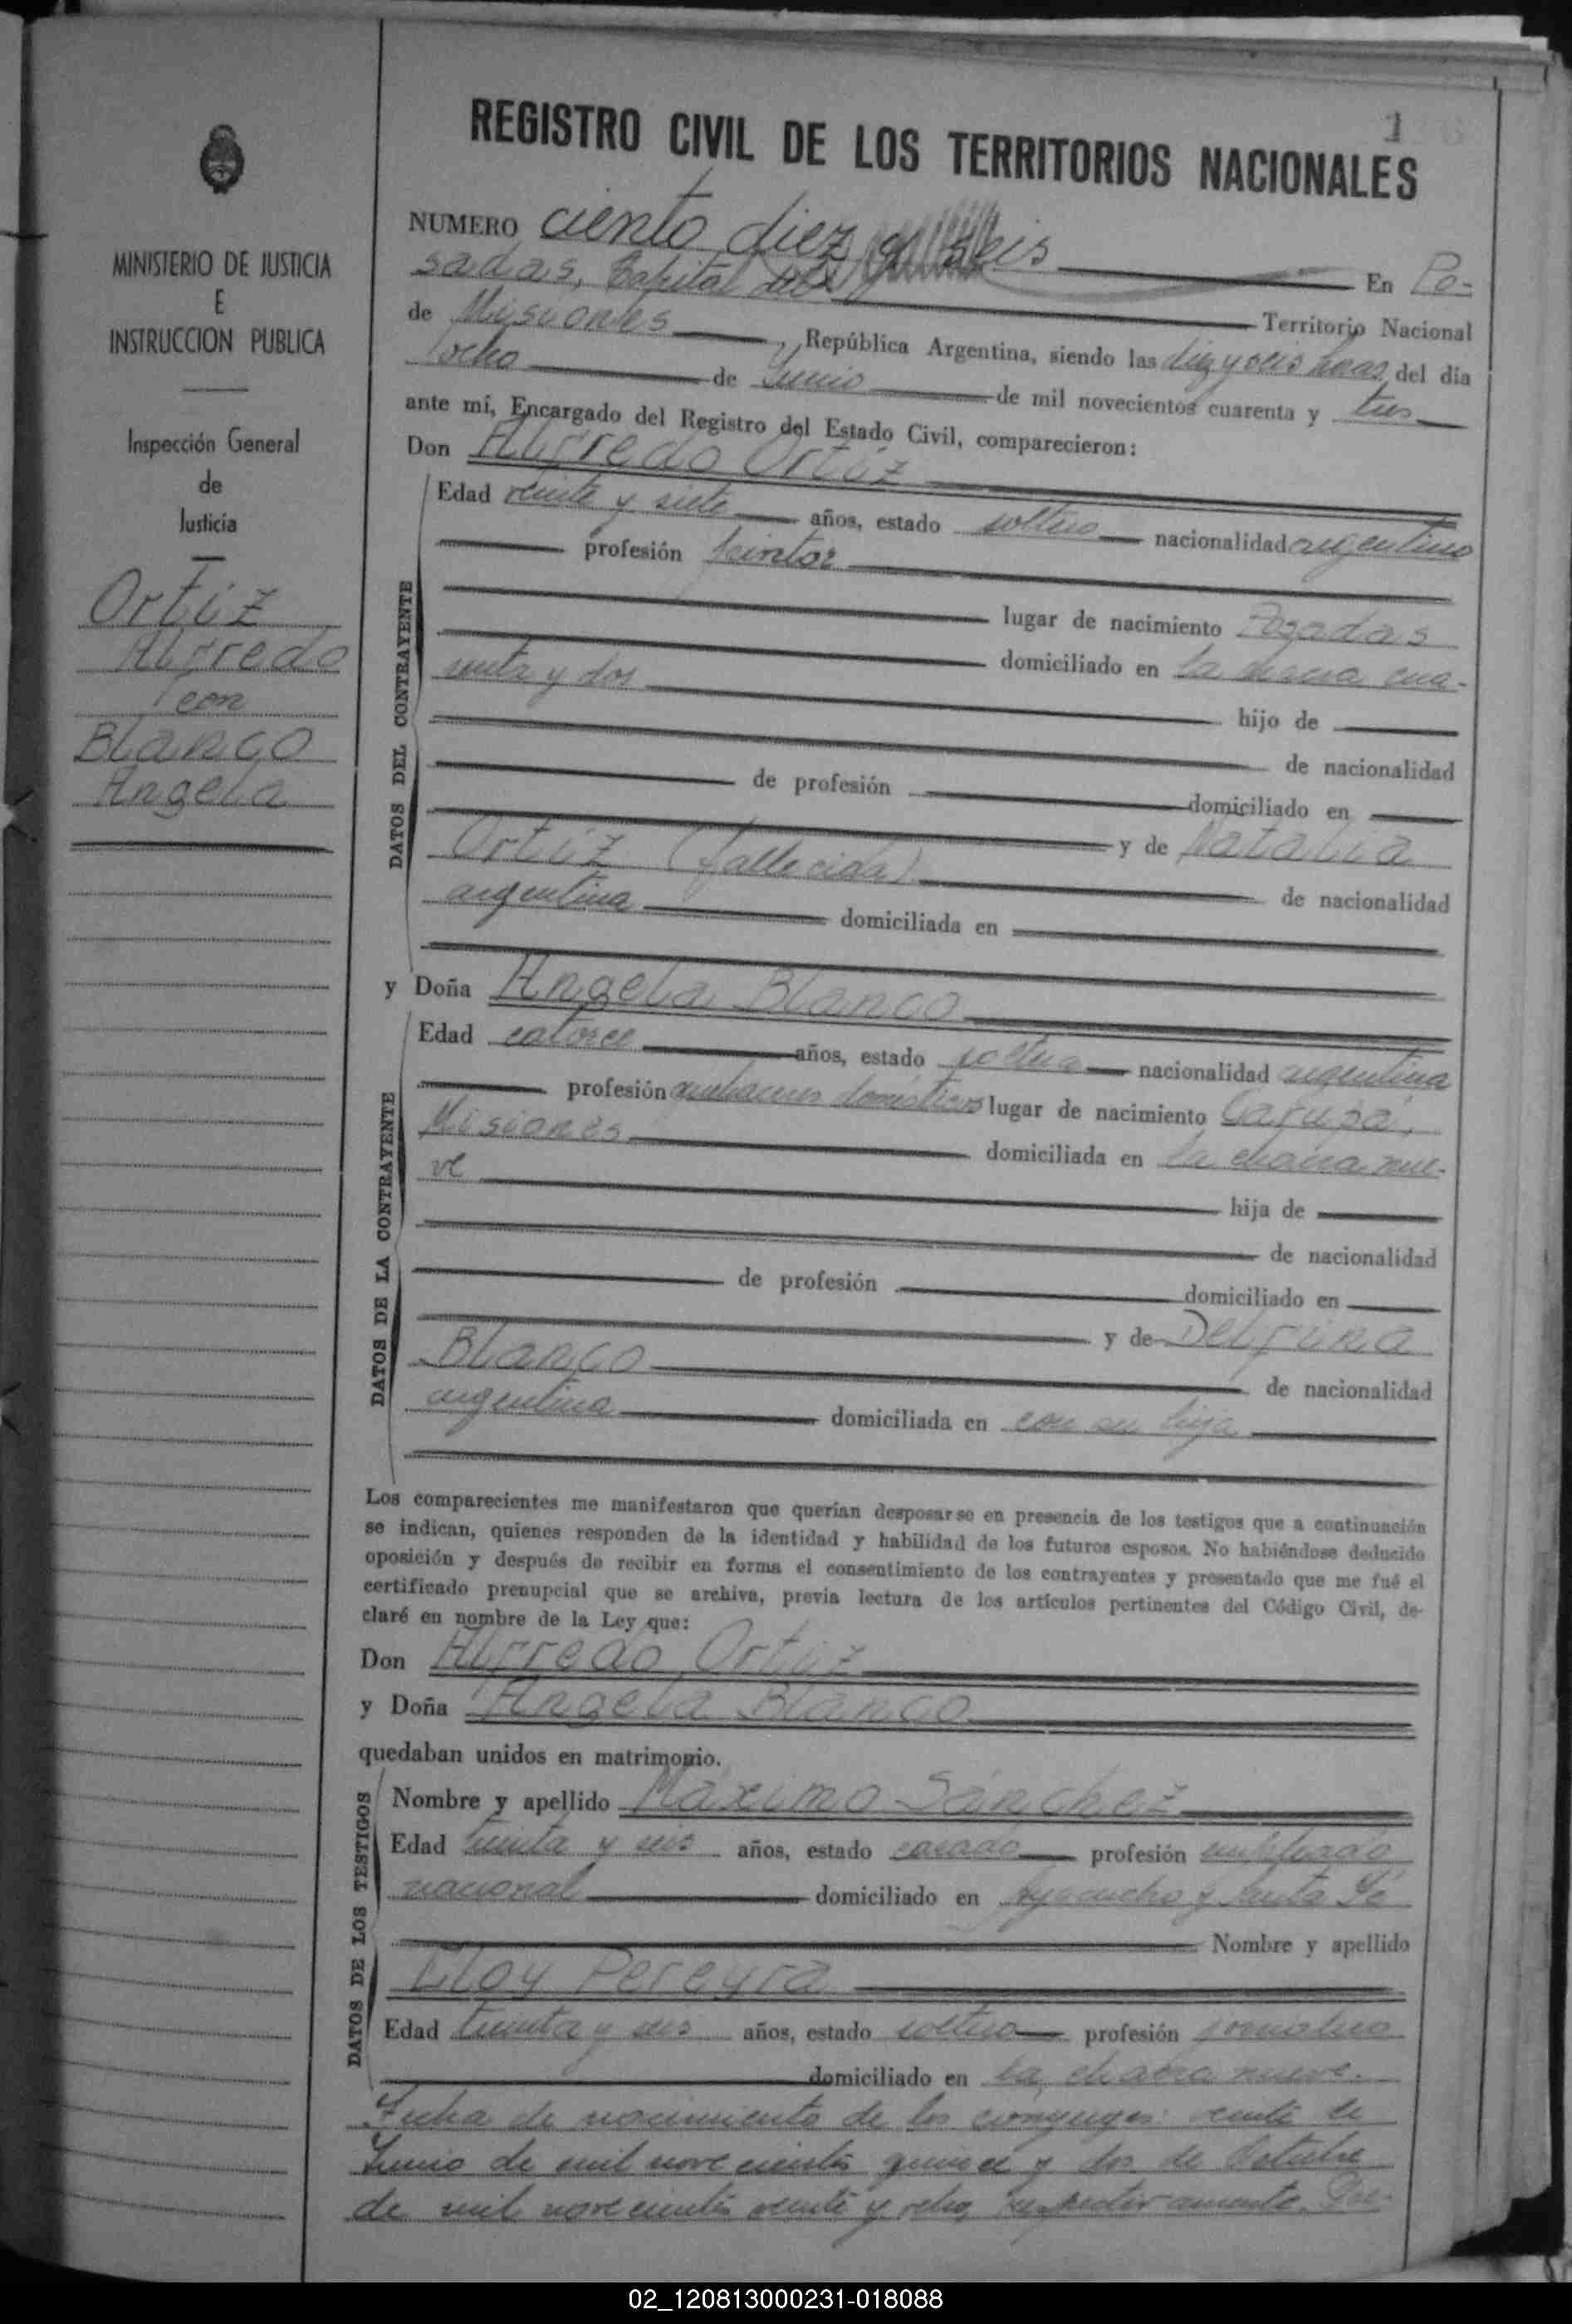 1
REGISTRO CIVIL DE LOS TERRITORIOS NACIONALES
MINISTERIO DE JUSTICIA
E
INSTRUCCION PUBLICA
Inspección General
de
Justicia
Ortiz
Alfredo
con
Blanco
Angela
NUMERO ciento diez y seis En Po-
sadas, Capital del Territorio Nacional
de Misiones, República Argentina, siendo las diez y seis horas del día
ocho de Junio de mil novecientos cuarenta y tres
ante mí, Encargado del Registro del Estado Civil, comparecieron:
Don Alfredo Ortiz
DATOS DEL CONTRAYENTE
Edad veinte y siete años, estado soltero nacionalidad argentino
profesión pintor
lugar de nacimiento Posadas
domiciliado en la chacra cua-
renta y dos
hijo de
de nacionalidad
de profesión domiciliado en
y de Natalia
Ortiz (fallecida) de nacionalidad
argentina domiciliada en
y Doña Angela Blanco
DATOS DE LA CONTRAYENTE
Edad catorce años, estado soltera nacionalidad argentina
profesión quehaceres domésticos lugar de nacimiento Garupá,
Misiones domiciliada en la chacra nue-
ve
hija de
de nacionalidad
de profesión domiciliado en
y de Delfina
Blanco de nacionalidad
argentina domiciliada en con su hija
Los comparecientes me manifestaron que querían desposarse en presencia de los testigos que a continuación
se indican, quienes responden de la identidad y habilidad de los futuros esposos. No habiéndose deducido
oposición y después de recibir en forma el consentimiento de los contrayentes y presentado que me fué el
certificado prenupcial que se archiva, previa lectura de los artículos pertinentes del Código Civil, de-
claré en nombre de la Ley que:
Don Alfredo Ortiz
y Doña Angela Blanco
quedaban unidos en matrimonio.
DATOS DE LOS TESTIGOS
Nombre y apellido Máximo Sánchez
Edad treinta y seis años, estado casado profesión empleado
nacional domiciliado en Ayacucho y Santa Fé
Nombre y apellido
Eloy Pereyra
Edad treinta y seis años, estado soltero profesión jornalero
domiciliado en la chacra nueve.
Fecha de nacimiento de los cónyuges: veinte de
Junio de mil novecientos quince y dos de Octubre
de mil novecientos veinte y ocho, respectivamente. Pre-
02_120813000231-018088